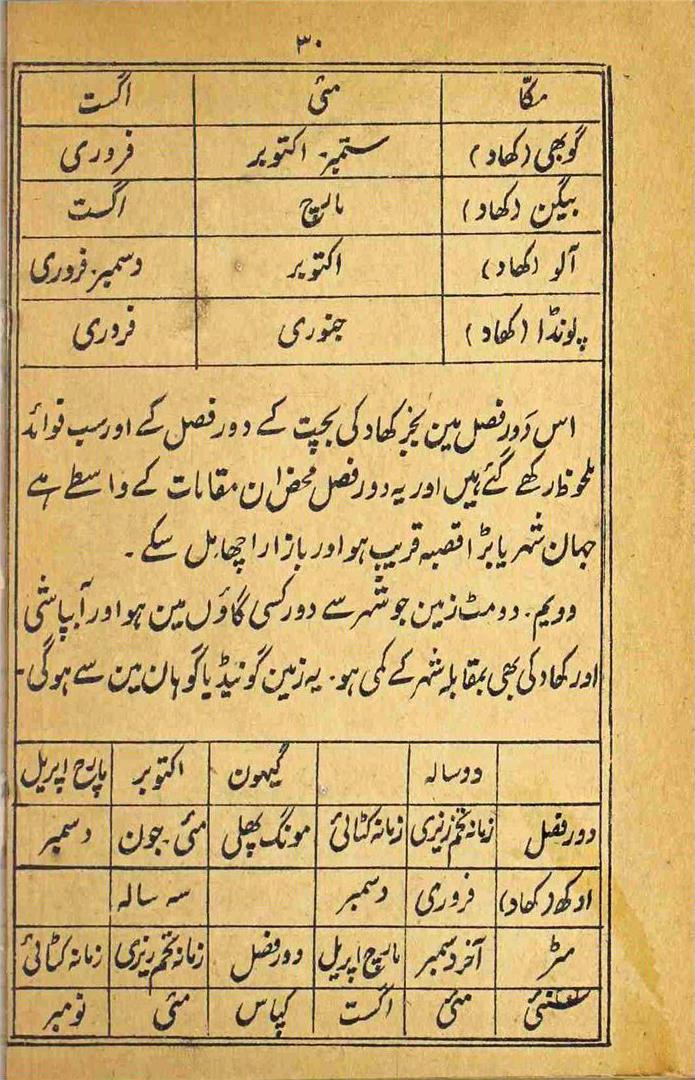 ۳۰
مکّا مئی اگست
گوبھی (کھاد) ستمبر۔ اکتوبر فروری
بیگن (کھاد) مارچ اگست
آلو (کھاد) اکتوبر دسمبر۔ فروری
پونڈا (کھاد) جنوری فروری
اس دَور فصل مین بجز کھاد کی بچت کے دور فصل کے اور سب فوائد
ملحوظ رکھے گئے ہیں اور یہ دور فصل محض ان مقامات کے واسطے ہے
جہان شہر یا بڑا قصبہ قریب ہو اور بازار اچھا مل سکے ۔
دویم۔ دومٹ زمین جو شہر سے دور کسی گاؤں مین ہو اور آبپاشی
اور کھاد کی بھی بمقابلہ شہر کے کمی ہو۔ یہ زمین گونیڈ یا گوہان مین سے ہوگی۔
دو سالہ گیہون اکتوبر مارچ اپریل
دور فصل زمانہ تخم ریزی زمانہ کٹائی مونگ پھلی مئی۔ جون دسمبر
اوکھ (کھاد) فروری دسمبر سہ سالہ
مٹر آخر دسمبر مارچ اپریل دور فصل زمانہ تخم ریزی زمانہ کٹائی
مئی اگست کپاس مئی نومبر